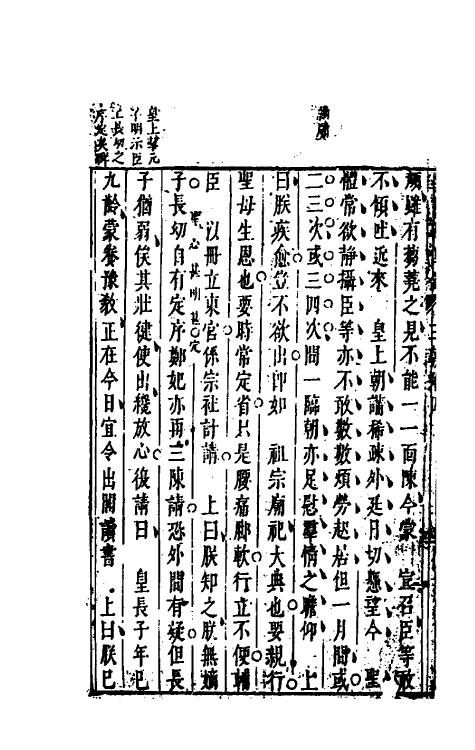 顏雖有蒭蕘之見不能一一面陳今蒙 宣召臣等敢
不傾吐近來 皇上朝講稀疎外廷日切懸望今 聖
體常欲靜攝臣等亦不敢數數煩勞起居但一月間或
二三次或三四次間一臨朝亦足慰羣情之瞻仰 上
曰朕疾愈豈不欲出即如 祖宗廟祀大典也要親行
聖母生恩也要時常定省只是腰痛脚軟行立不便輔
臣 以冊立東宮係宗社計請 上曰朕知之朕無嫡
聖心甚明甚定
子長幼自有定序鄭妃亦再三陳請恐外間有疑但長
子猶弱俟其壯徤使出纔放心後請曰 皇長子年已
九齡蒙養豫教正在今日宜令出閣讀書 上曰朕已
皇上拏元
子明示臣
長幼之